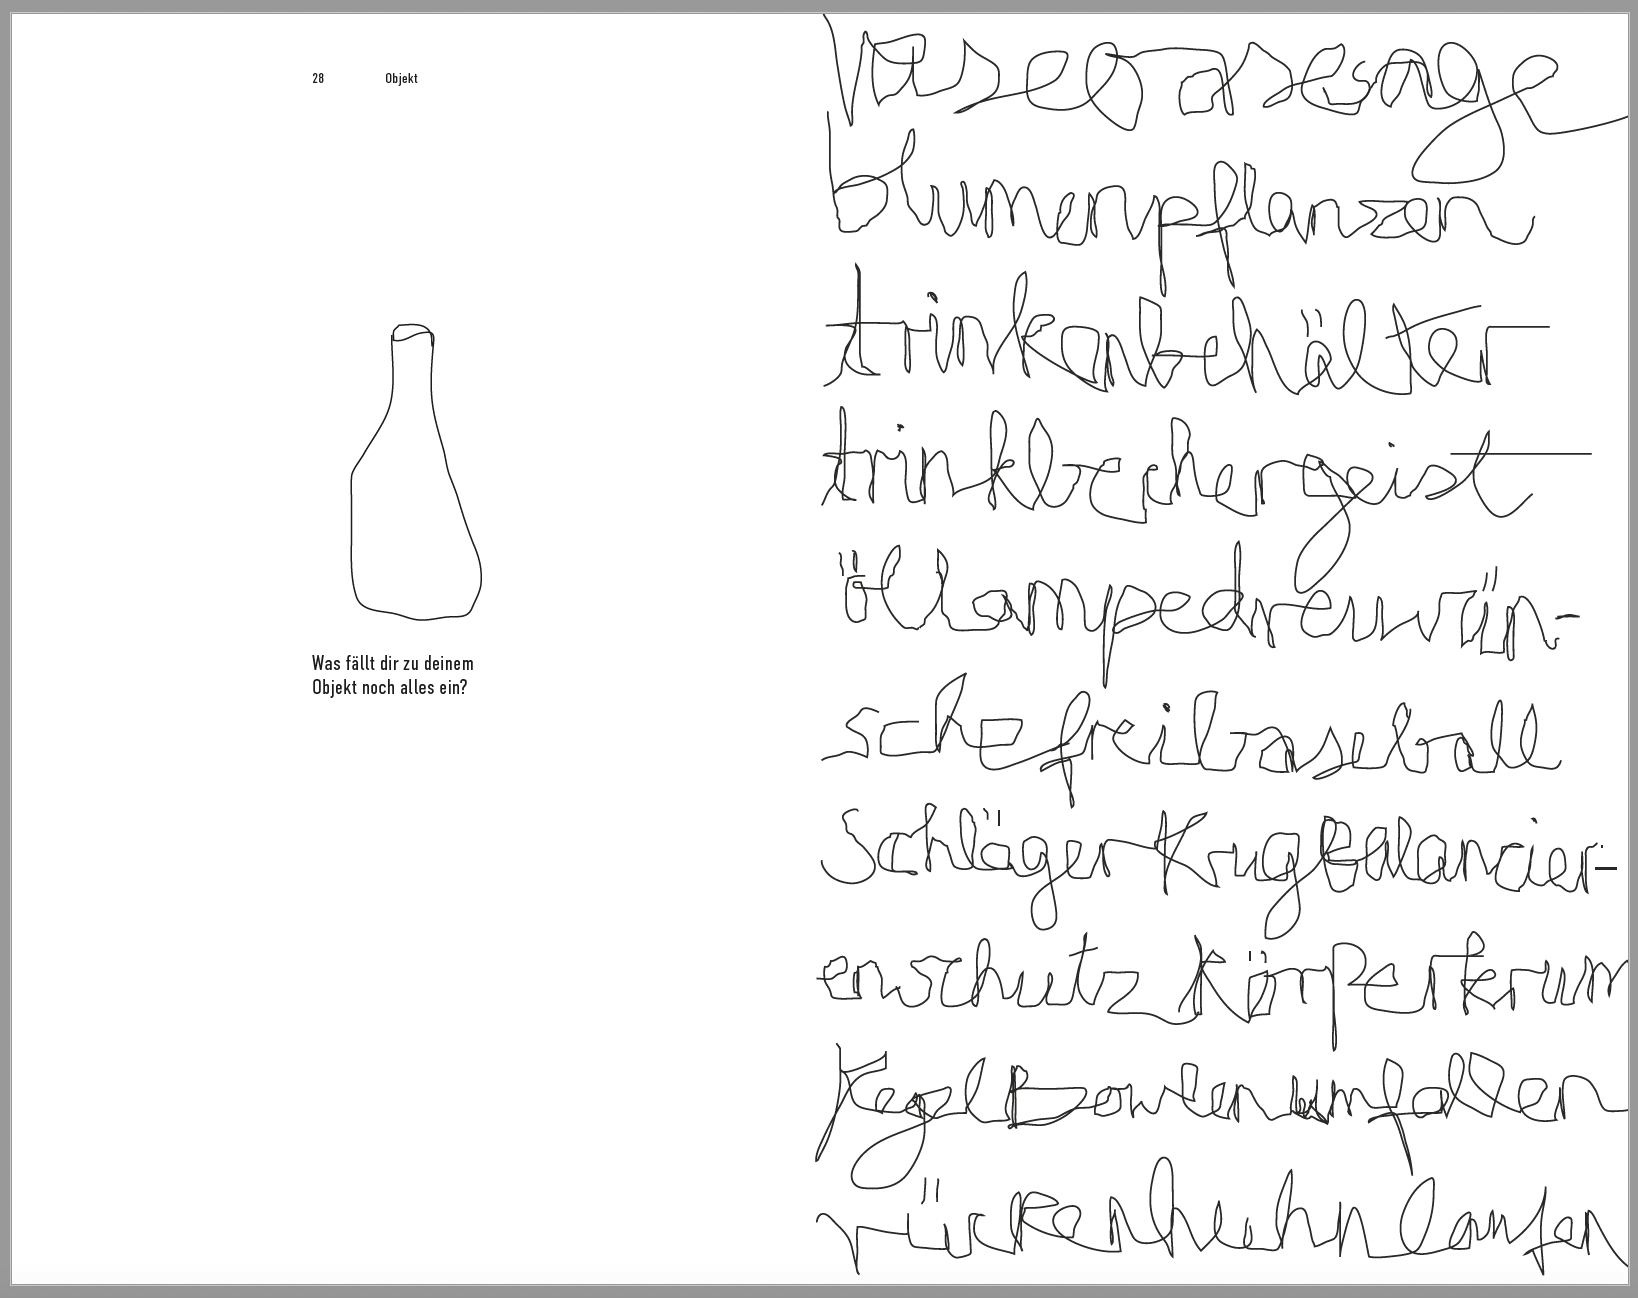 28 Objekt
Was fällt dir zu deinem
Objekt noch alles ein?
Vase
blumenpflanzen
trinkenbehälter
trinkbechergeist
öllampedreiwün-
schefreibaseball
SchlägerKrugBalancier-
enschutz Körperkrum
KegelBowlenumfallen
rückenhuhnlaufen